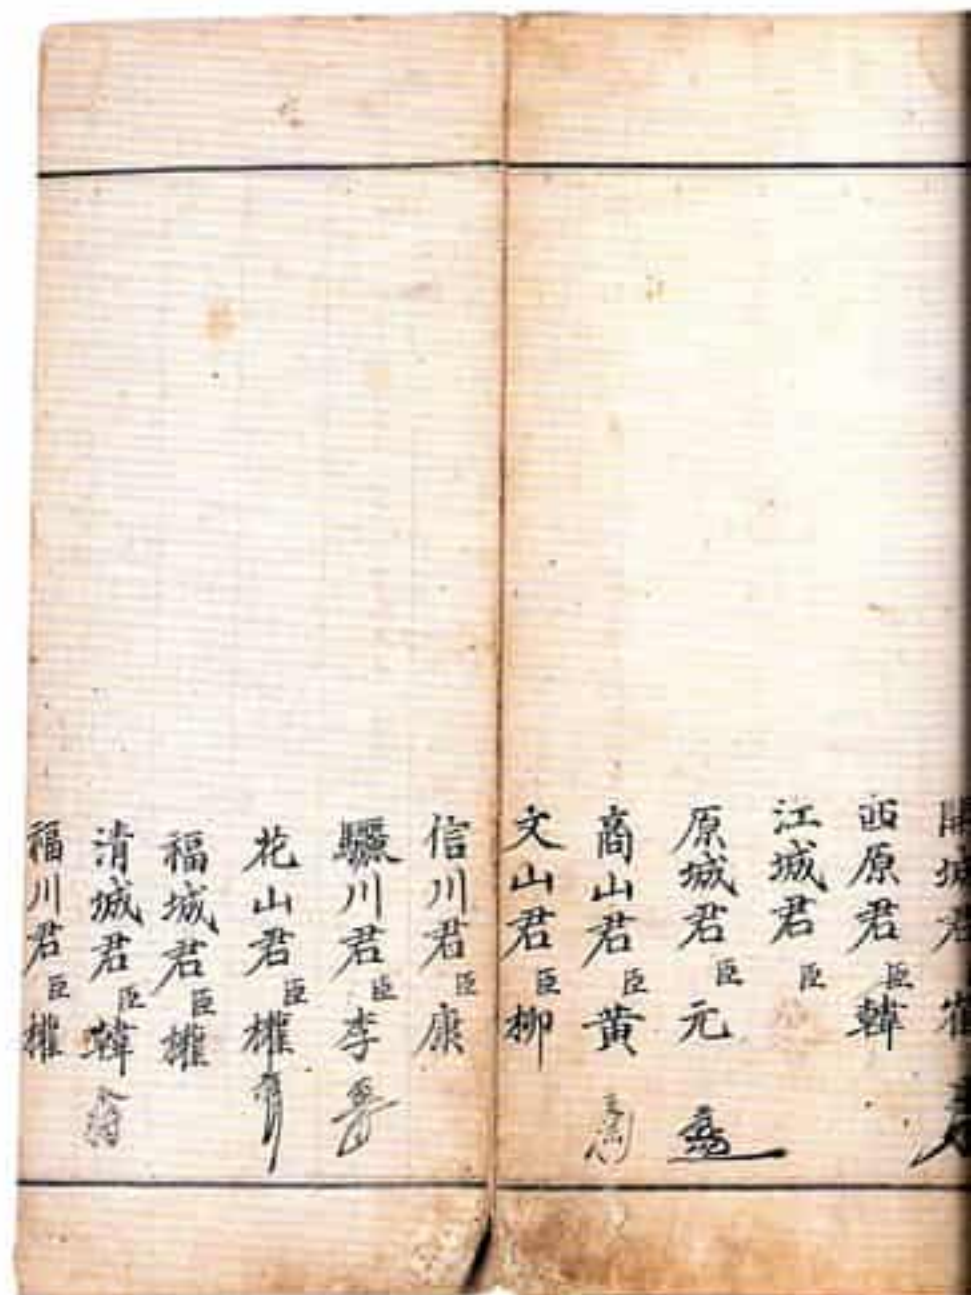 開城君 崔
西原君 臣 韓
江城君 臣
原城君 臣 元
商山君 臣 黃
文山君 臣 柳
信川君 臣 康
驪川君 臣 李
花山君 臣 權
福城君 臣 權
清城君 臣 韓
福川君 臣 權